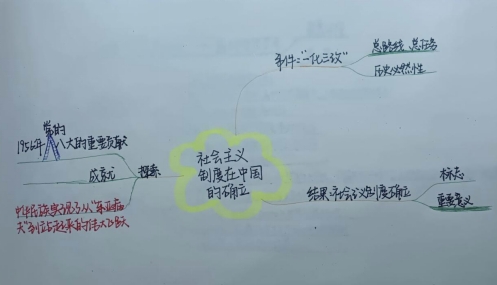 社会主义
制度在中国
的确立
条件:"一化三改"
总路线、总任务
历史必然性
结果:社会主义制度确立
标志
重要意义
探索
党的
1956年八大的重要贡献
成就
中华民族实现了从"东亚病
夫"到站起来的伟大飞跃